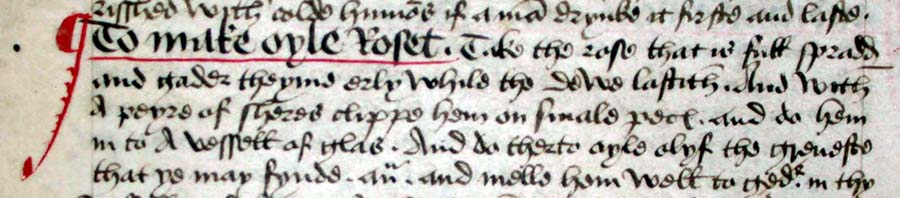 risshed wyth colde humos if a mā drynke it firste and laste .
To make oyle Roset . Take the rose that is full spradd
and gader theyme erly while the dewe lastith . And with
A peyre of sheres clippe hem on smale pecꝭ . and do hem
in to A vessell of glas . And do therto oyle olyf the greneste
that ye may fynde . and melle hem well to geder in thy